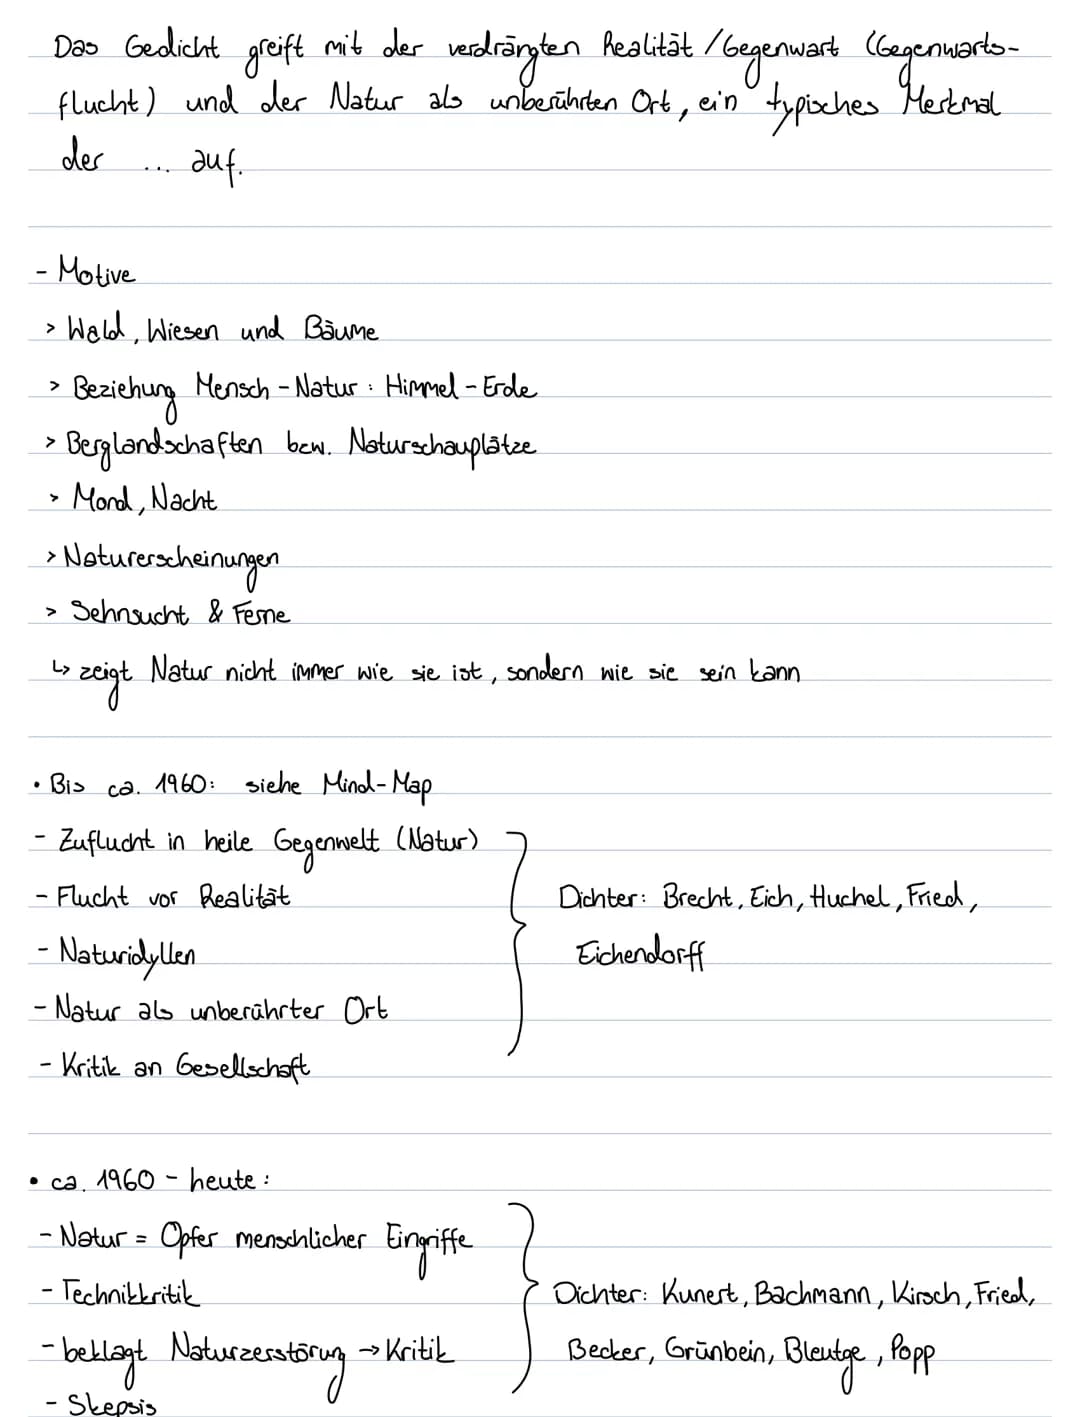 Das Gedicht greift mit der verdrängten Realität / Gegenwart (Gegenwarts-
flucht) und der Natur als unberührten Ort, ein typisches Merkmal
der ... auf.
- Motive
> Wald, Wiesen und Bäume
> Beziehung Mensch - Natur : Himmel - Erde
> Berglandschaften bzw. Naturschauplätze
> Mond, Nacht
> Naturerscheinungen
> Sehnsucht & Ferne
↳ zeigt Natur nicht immer wie sie ist, sondern wie sie sein kann
• Bis ca. 1960: siehe Mind-Map
- Zuflucht in heile Gegenwelt (Natur)
- Flucht vor Realität
Dichter: Brecht, Eich, Huchel, Fried,
- Naturidyllen
Eichendorff
- Natur als unberührter Ort
- Kritik an Gesellschaft
• ca. 1960 - heute :
- Natur = Opfer menschlicher Eingriffe
- Technikkritik
Dichter: Kunert, Bachmann, Kirsch, Fried,
- beklagt Naturzerstörung → Kritik
Becker, Grünbein, Bleutge, Popp
- Skepsis